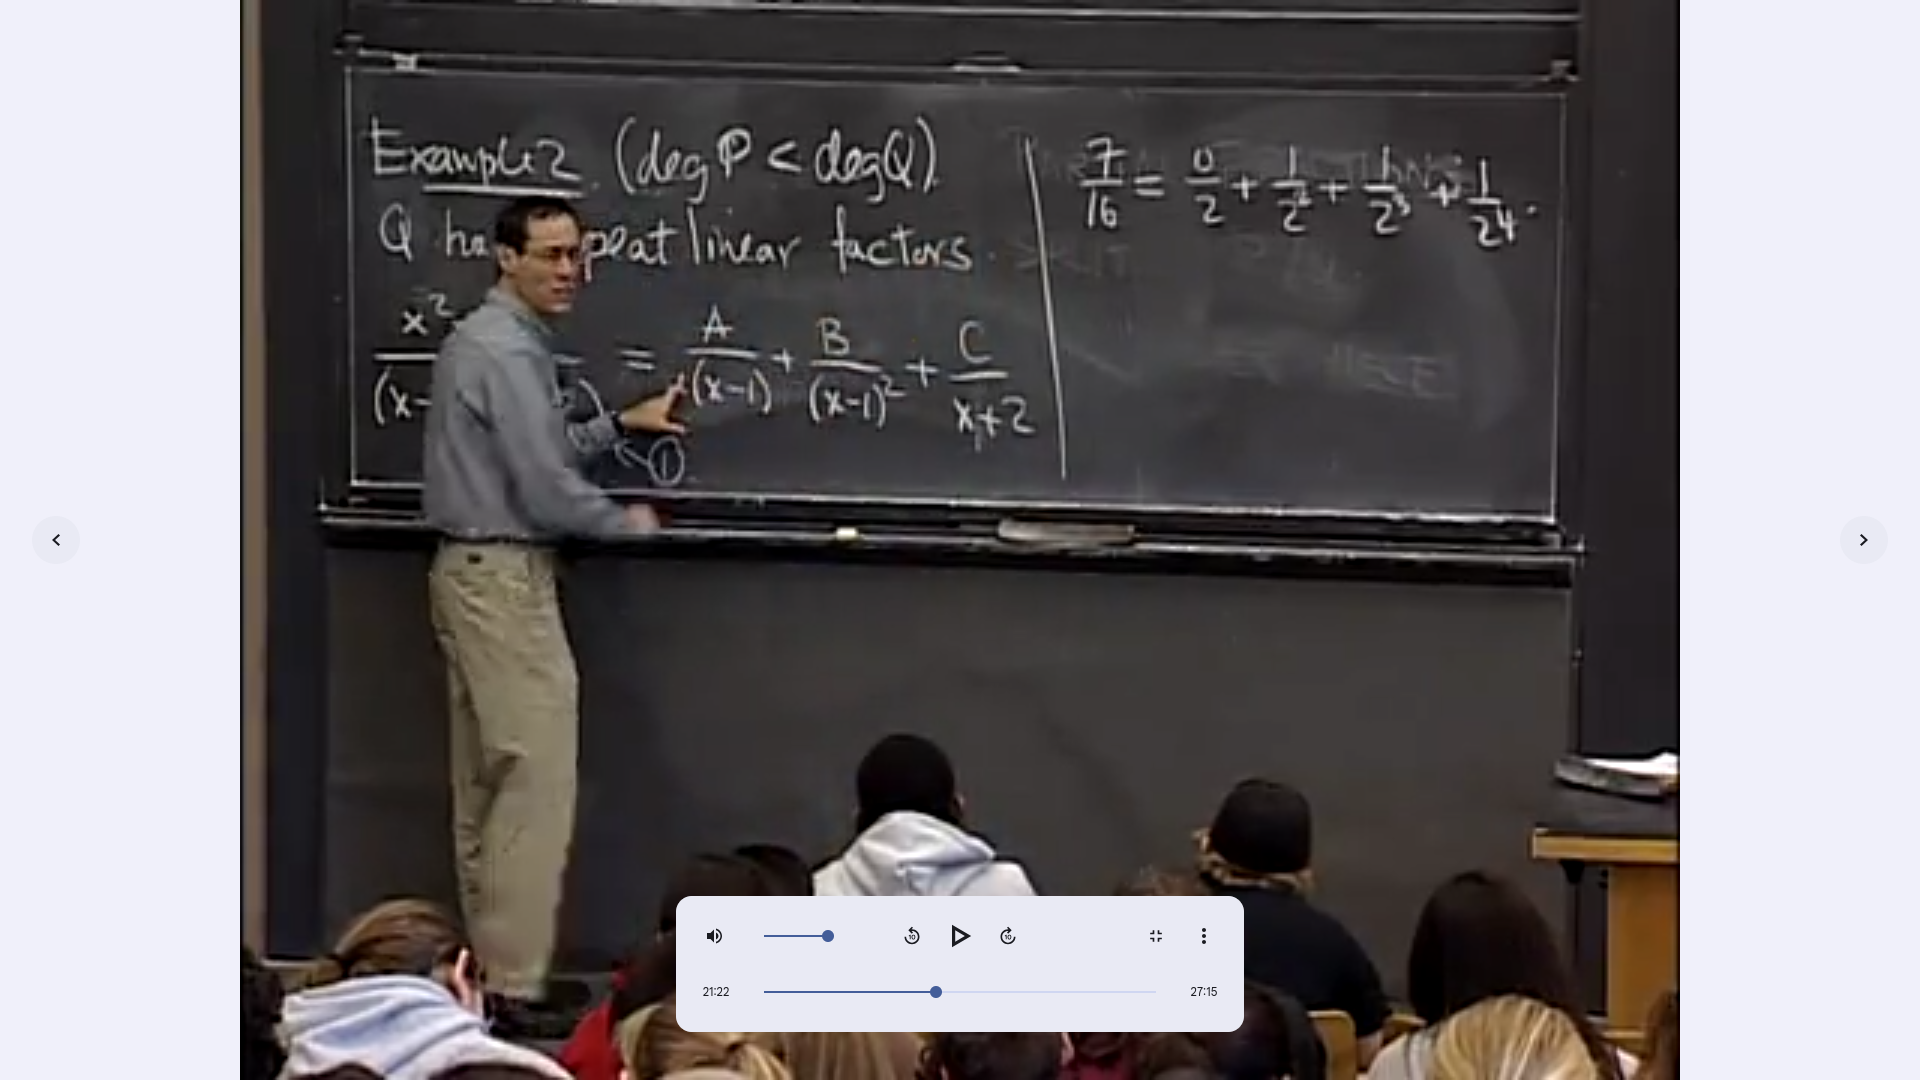 Example 2. (deg P < deg Q).
Q ha peat linear factors.
x² = A/(x-1) + B/(x-1)² + C/(x+2)
(x-
①
7/16 = 0/2 + 1/2² + 1/2³ + 1/2⁴.
21:22
27:15